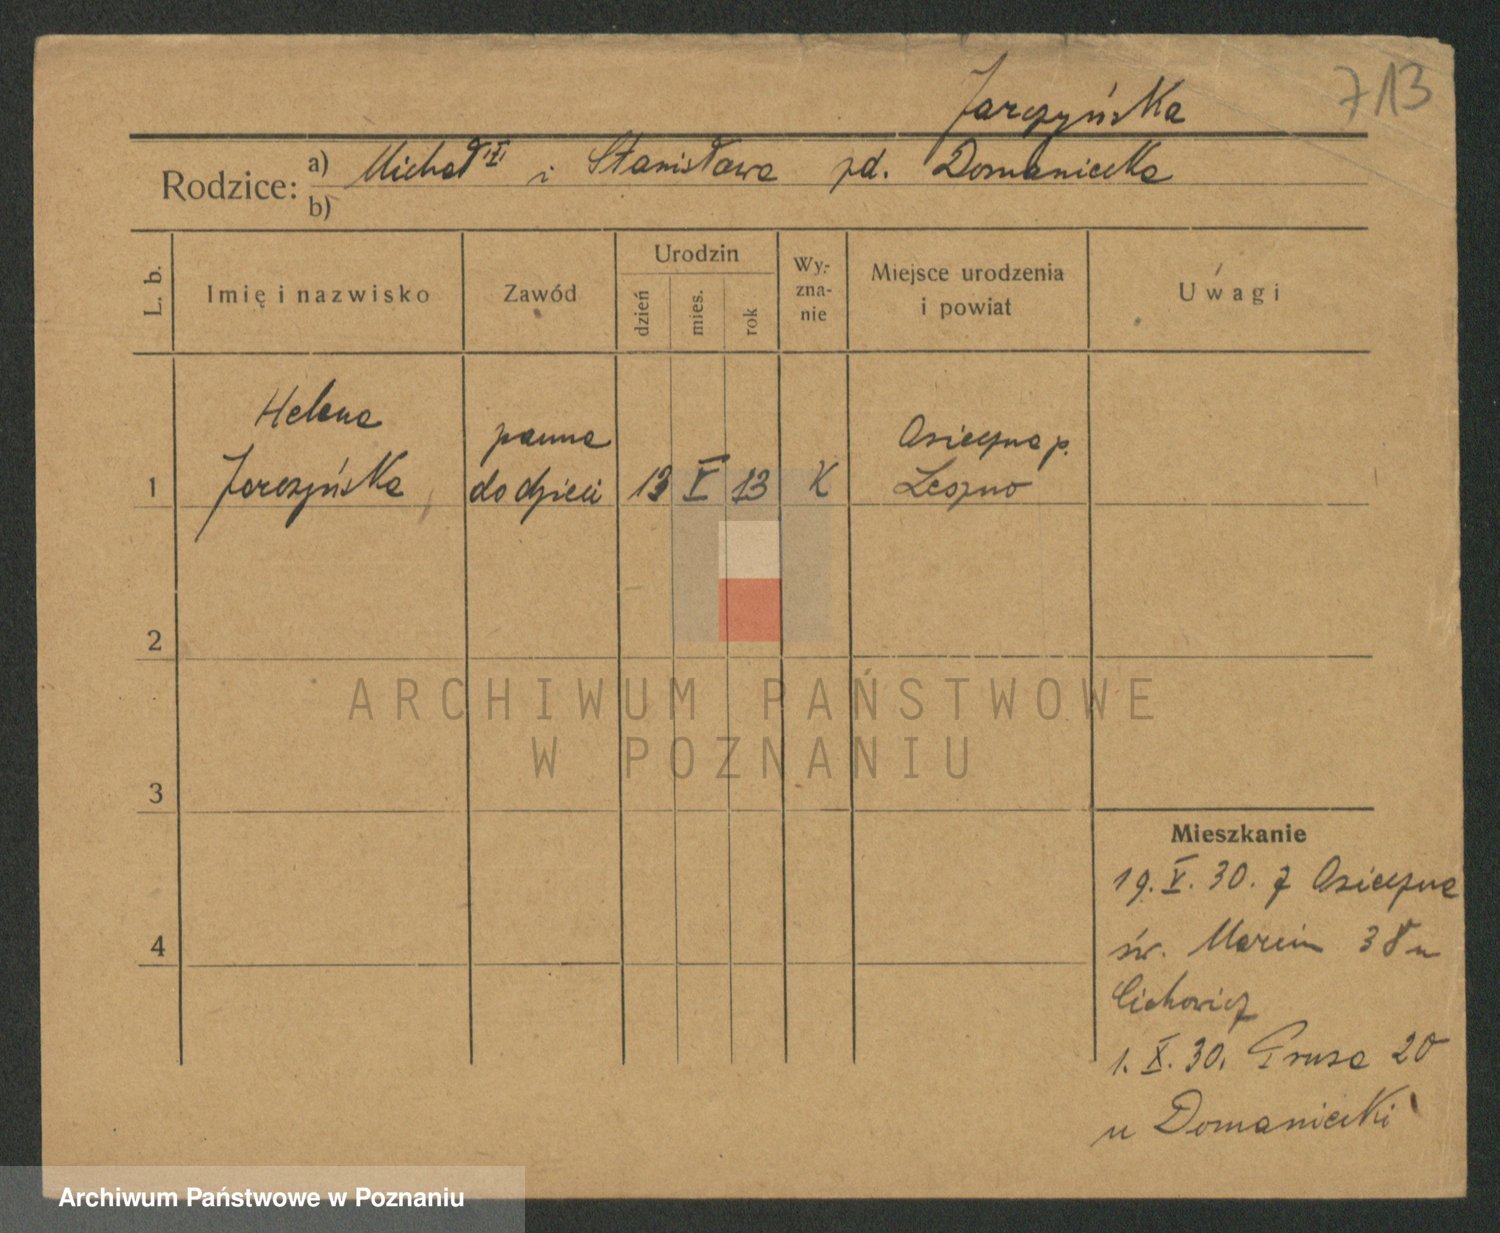 713
Jarczyńska
Rodzice: a) Michał i Stanisława zd. Domaniecka
b)
L. b.
Imię i nazwisko
Zawód
Urodzin
dzień
mies.
rok
Wy-
zna-
nie
Miejsce urodzenia
i powiat
Uwagi
Helena panna Osieczna p.
1 Jarczyńska do dzieci 13 V 13 K Leszno
2
3
4
Mieszkanie
19. V. 30. z Osieczna
św. Marcin 38 u
Cichowicz
1. X. 30. 20
u Domaniecki
ARCHIWUM PAŃSTWOWE
W POZNANIU
Archiwum Państwowe w Poznaniu